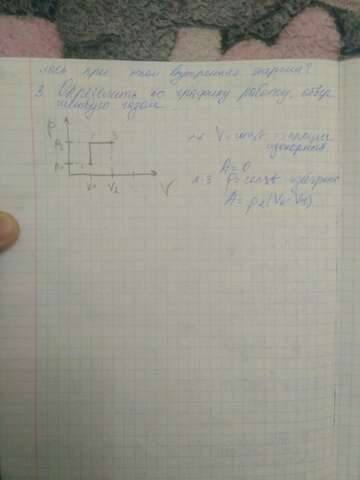 лось при этом внутренняя энергия?
3. Определить по графику работу, совер
шённую газом
P
P₂
P₁
1
2
3
V₁ V₂ V
1-2 V=const => процесс
изохорный
A=0
2-3 P=const
A=p₂(V₂-V₁)